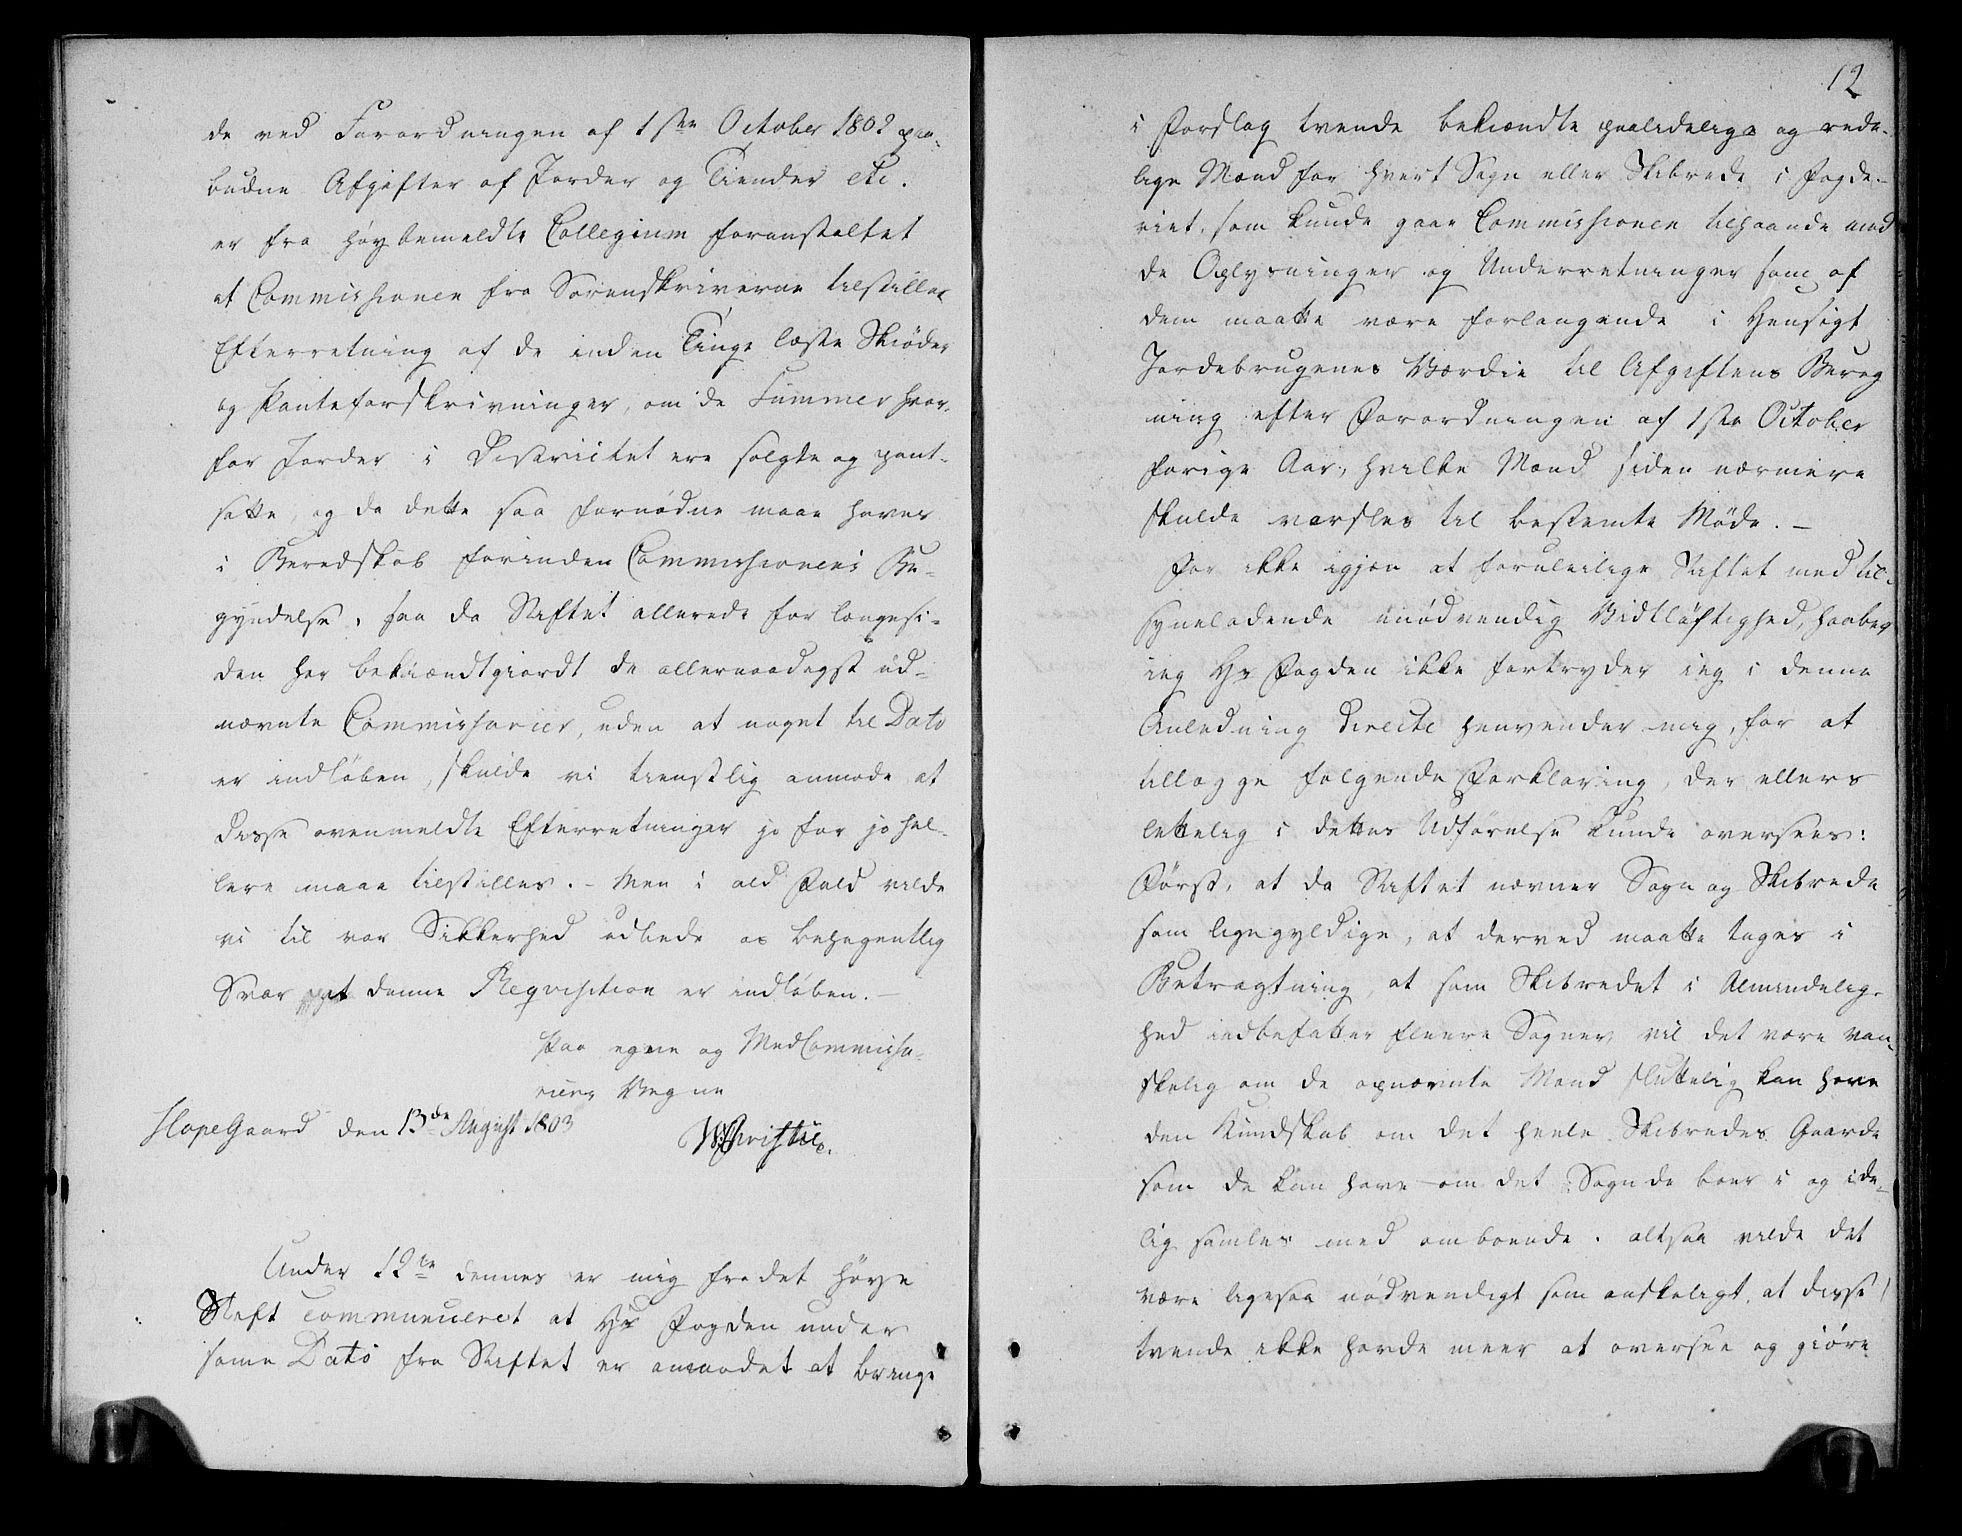 de ved Forordningen af 1ste October 1802 paa-
budne Afgifter af Jorder og Tiender etc.
er fra høybemeldte Collegium foranstaltet
at Commissionen fra Sorenskriverne tilstilles
Efterretning af de inden Tinge læste Skiøder
og Panteforskrivninger, om de Summer hvor-
for Jorder i Districtet ere solgte og pant-
satte, og da dette saa fornødne maae haves
i Beredskab forinden Commissionens Be-
gyndelse, saa da Stiftet allerede for længesi-
den har bekiændtgiordt de allernaadigst ud-
nævnte Commissarier, uden at noget til Dato
er indløben, skulde vi tienstlig anmode at
disse ovenmeldte Efterretninger jo før jo hel-
lere maae tilstilles. - Men i ald Fald vilde
vi til vor Sikkerhed udbede os behagentlig
Svar at denne Reqvisition er indløben. -
Paa egne og MedCommissa-
riers Vegne
HopeGaard den 13de August 1803
WChristie.
Under 12te dennes er mig fra det høye
Stift communiceret at Hr Fogden under
samme Dato fra Stiftet er anmodet at bringe
12
i Forslag tvende bekiændte paalidelige og rede-
lige Mænd for hvert Sogn eller Skibrede i Fogde-
riet, som kunde gaae Commissionen tilhaande med
de Oplysninger og Underretninger som af
dem maatte være forlangende i Hensigt
Jordebrugenes Værdie til Afgiftens Bereg
ning efter Forordningen af 1ste October
forige Aar, hvilke Mænd siden nærmere
skulde varsles til bestemte Møde. -
For ikke igjen at foruleilige Stiftet med til-
syneladende unødvendig Vidtløftighed, haaber
ieg Hr Fogden ikke fortryder ieg i denne
Anledning directe henvender mig, for at
tillægge følgende Forklaring, der ellers
lettelig i dettes Udførelse kunde oversees:
Først, at da Stiftet nævner Sogn og Skibrede
som ligegyldige, at derved maatte tages i
Betragtning, at som Skibredet i Almindelig-
hed indbefatter fleere Sogner, vil det være van-
skelig om de opnævnte Mænd sluttelig kan have
den Kundskab om det heele Skibredes Gaarde
som de kan have om det Sogn de boer i og ide-
lig samles med omboende. altsaa vilde det
være ligesaa nødvendigt som ønskeligt, at disse
tvende ikke havde meer at oversee og giøre